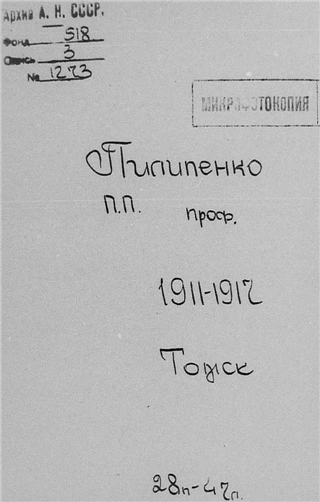 Архив А. Н. СССР.
Фонд 518
Опись 3
№ 1273
МИКРОФОТОКОПИЯ
Пилипенко
П.П. проф.
1911-1917
Томск
28п-47л.